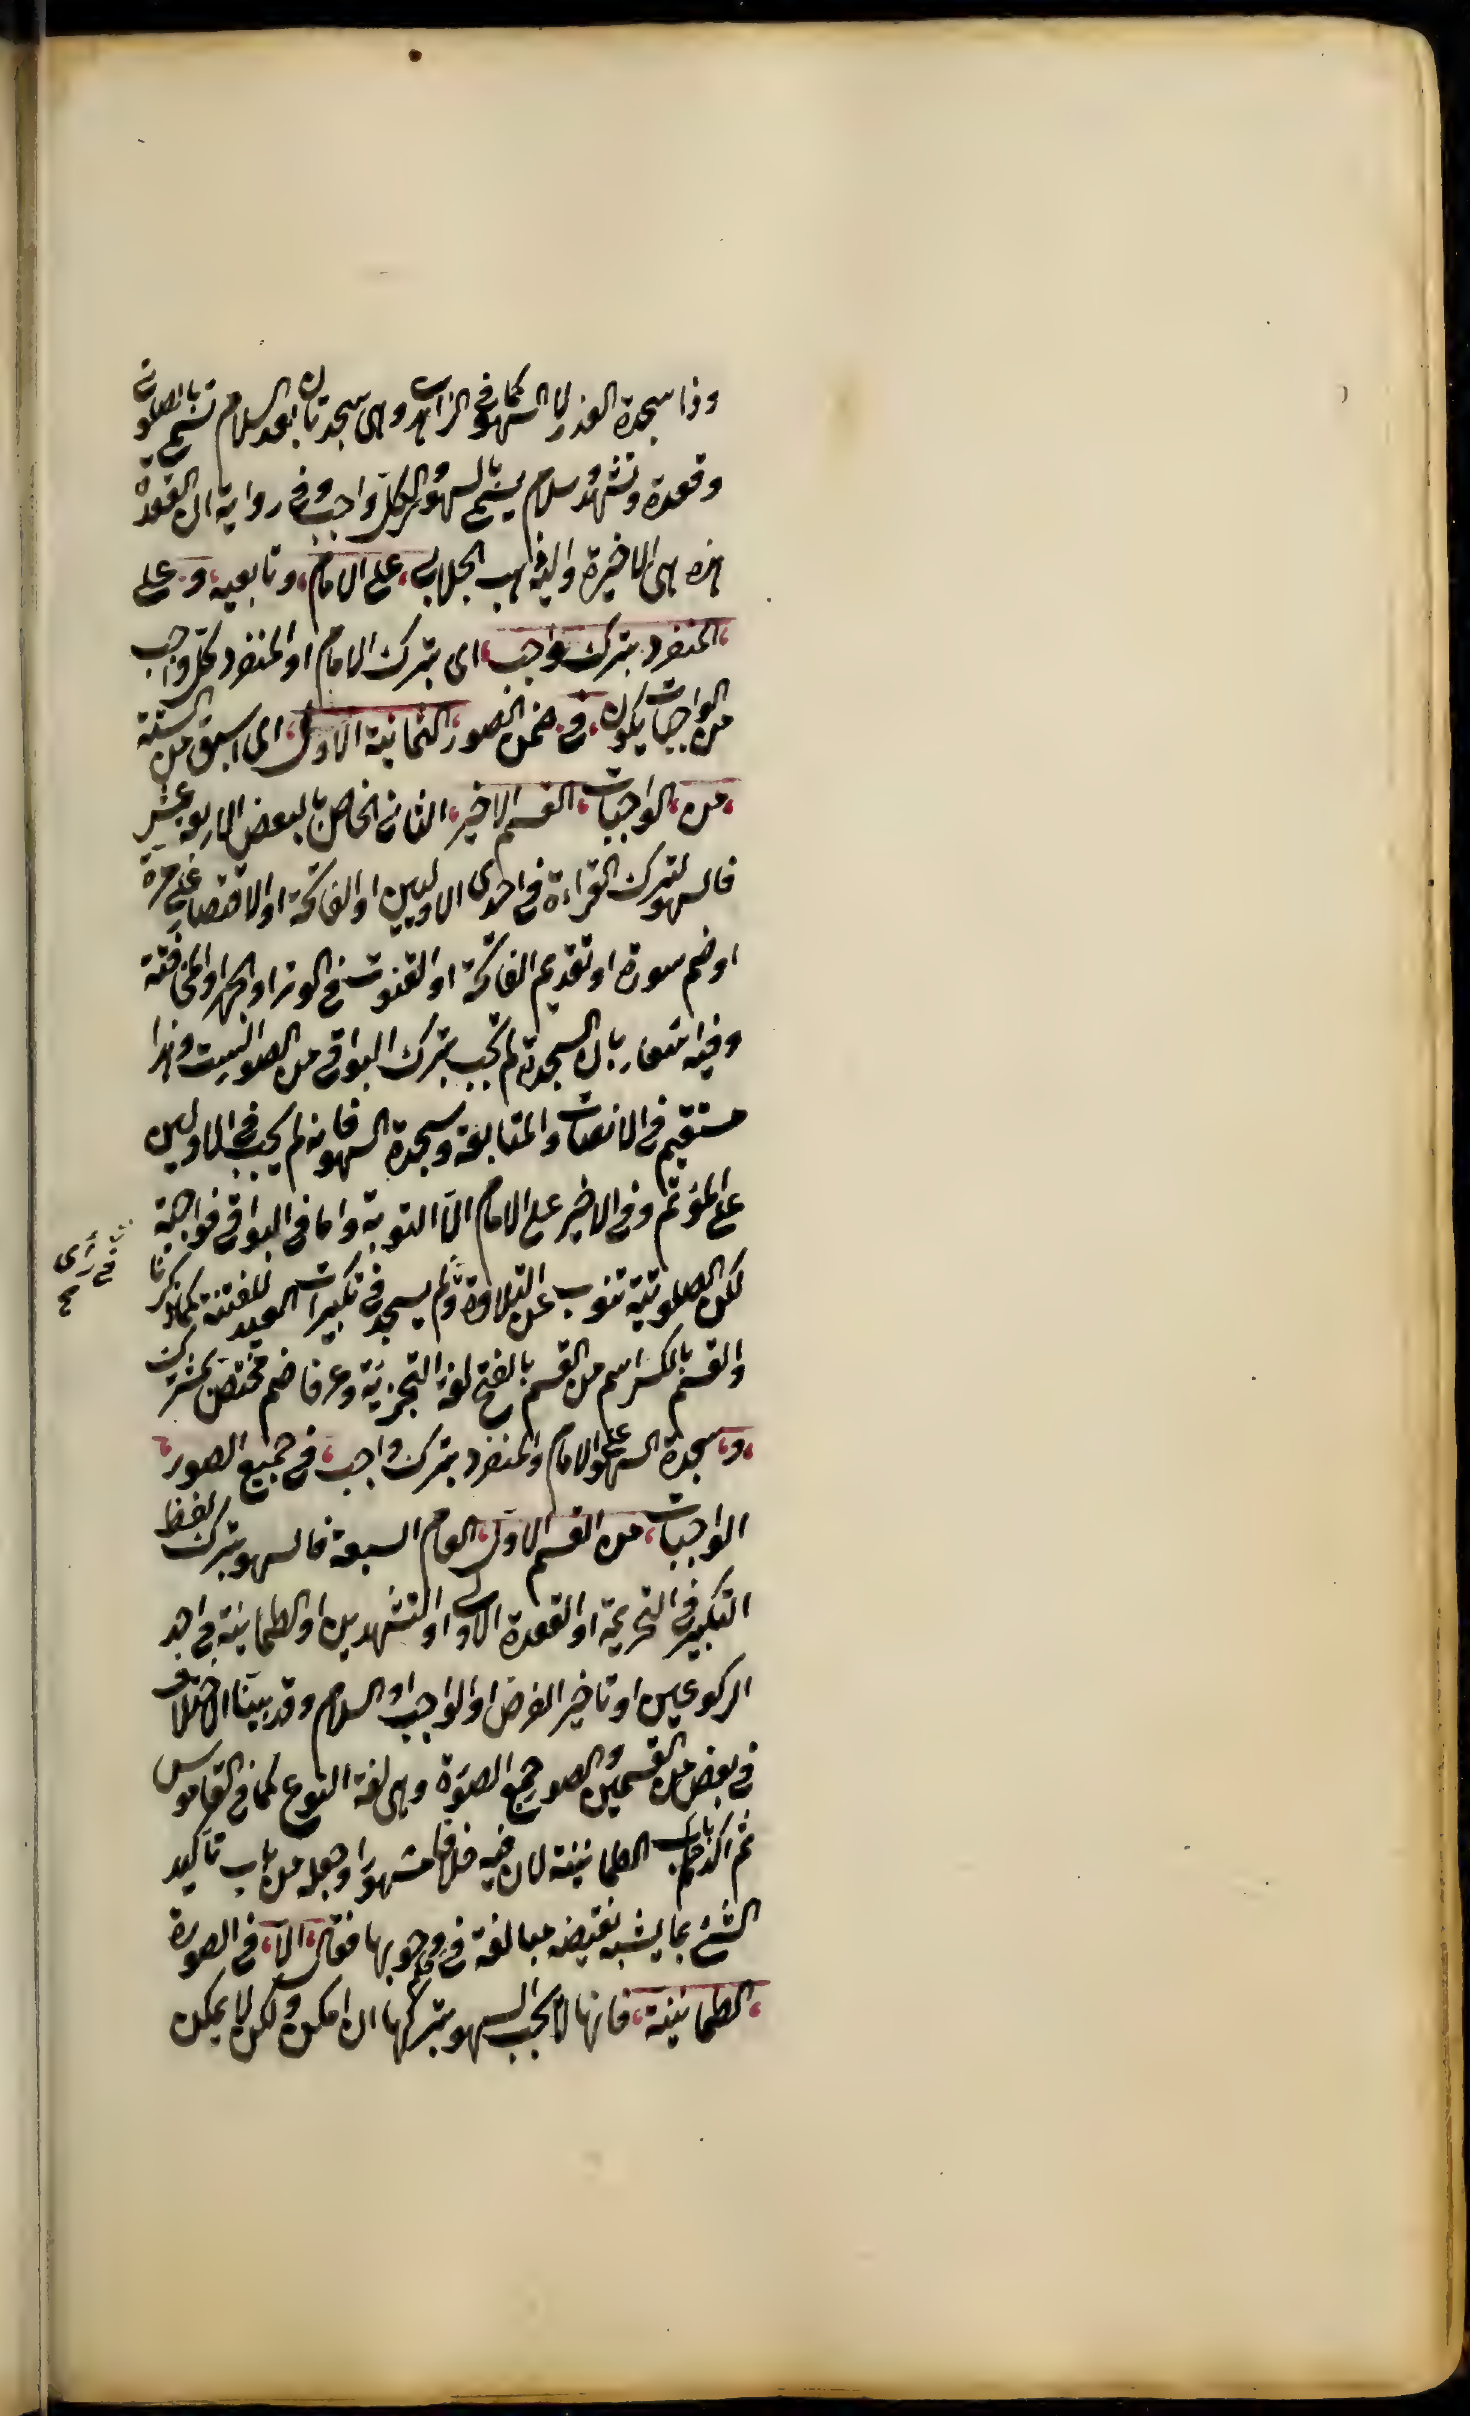 وذا سجدة العذر لا السهو كما في الزاهدي وهي سجدتان بعد السلام تسمى بالصلوتي
وقعدة وتشهد وسلام يسمى بالسهوي والكل واجب وفي رواية ان القعدة
هذه هي الاخيرة واليه ذهب الجلابي على الامام وتابعيه و على
المنفرد بترك واجب اى بترك الامام او المنفرد كل واجب
من الواجبات يكون في ضمن الصور الثمانية الاول اى اسبق من الستة
من الواجبات القسم الاخير الثاني الخاص بالبعض الاربعة عشر
فالسهو لترك القراءة في احدى الاوليين او الفاتحة او الاقتصار على مرة
او ضم سورة او تقديم الفاتحة او القنوت في الوتر او الجهر او المخافتة
وفيه اشعار بان السجدة لم تجب بترك البواقي من الصور الست وهذا
مستقيم في الانصات والمتابعة وسجدة السهو فانه لم يجب في الاوليين
على المؤتم وفي الاخير على الامام الا التوبة واما في البواقي فواجبة
لكن الصلوتية تنوب عن التلاوة ولم يسجد في تكبيرات العيد للفتنة كما ذكرنا
والقسم بالكسر اسم من القسم بالفتح لغة التجزية وعرفا ضم مختص بمشترك
و سجدة السهو على الامام والمنفرد بترك واجب في جميع الصور
الواجبات من القسم الاول العام السبعة فالسهو بترك لفظ
التكبير في التحريمة او القعدة الاولى او التشهدين او الطمانينة في احد
الركوعين او تاخير الفرض او الواجب او السلام وقد بينا الاختلاف
في بعض من القسمين والصور جمع الصورة وهي لغة النوع كما في القاموس
ثم اكد باب الطمانينة لان فيه خلافا مشهورا وجعله من باب تاكيد
الشئ بما يشبه نقيضه مبالغة في وجوبها فقال الا في الصورة
الطمانينة فانها لا تجب السهو بتركها ان امكن ولكن لا يمكن